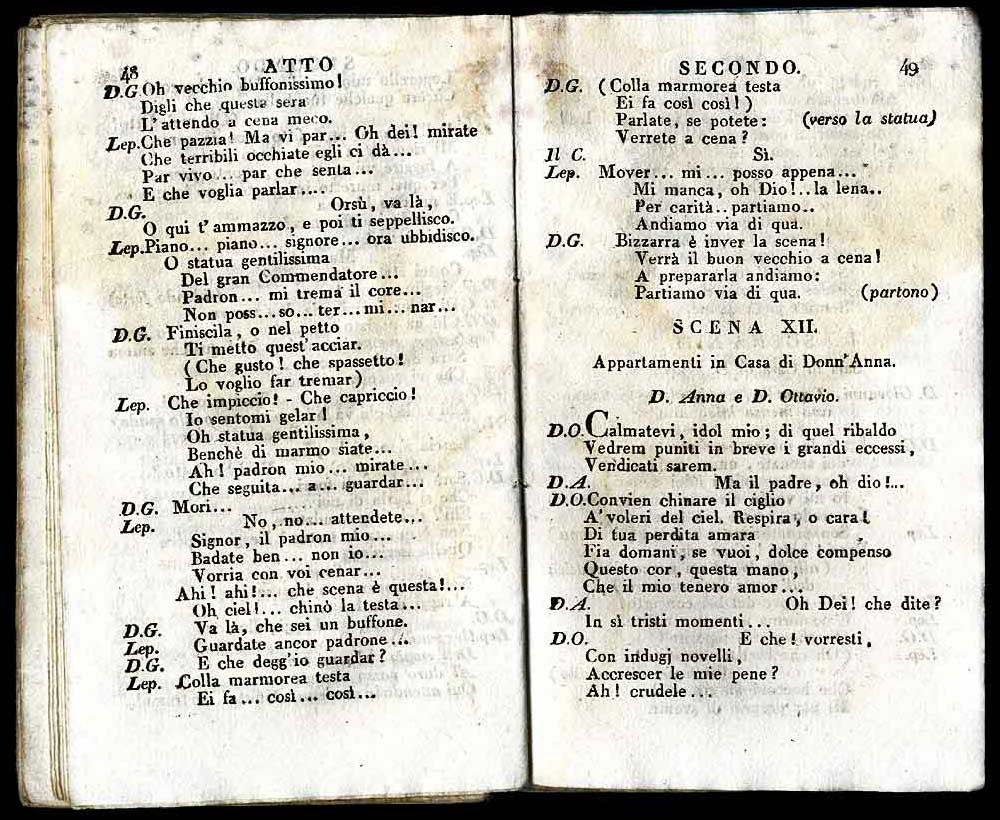 48 ATTO
D.G. Oh vecchio buffonissimo!
Digli che questa sera
L'attendo a cena meco.
Lep. Che pazzia! Ma vi par... Oh dei! mirate
Che terribili occhiate egli ci dà...
Par vivo... par che senta...
E che voglia parlar....
D.G. Orsù, va là,
O qui t'ammazzo, e poi ti seppellisco.
Lep. Piano... piano... signore... ora ubbidisco.
O statua gentilissima
Del gran Commendatore...
Padron... mi trema il core...
Non poss...so...ter...mi...nar...
D.G. Finiscila, o nel petto
Ti metto quest'acciar.
(Che gusto! che spassetto!
Lo voglio far tremar)
Lep. Che impiccio! - Che capriccio!
Io sentomi gelar!
Oh statua gentilissima,
Benchè di marmo siate...
Ah! padron mio... mirate...
Che seguita... a... guardar...
D.G. Mori...
Lep. No, no... attendete...
Signor, il padron mio...
Badate ben... non io...
Vorria con voi cenar...
Ahi! ahi!... che scena è questa!...
Oh ciel!... chinò la testa...
D.G. Va là, che sei un buffone.
Lep. Guardate ancor padrone...
D.G. E che degg'io guardar?
Lep. Colla marmorea testa
Ei fa... così... così...
SECONDO. 49
D.G. (Colla marmorea testa
Ei fa così così!)
Parlate, se potete: (verso la statua)
Verrete a cena?
Il C. Sì.
Lep. Mover... mi... posso appena...
Mi manca, oh Dio!..la lena..
Per carità..partiamo..
Andiamo via di qua.
D.G. Bizzarra è inver la scena!
Verrà il buon vecchio a cena!
A prepararla andiamo:
Partiamo via di qua. (partono)
SCENA XII.
Appartamenti in Casa di Donn'Anna.
D. Anna e D. Ottavio.
D.O. Calmatevi, idol mio; di quel ribaldo
Vedrem puniti in breve i grandi eccessi,
Vendicati sarem.
D.A. Ma il padre, oh dio!...
D.O. Convien chinare il ciglio
A' voleri del ciel. Respira, o cara!
Di tua perdita amara
Fia domani, se vuoi, dolce compenso
Questo cor, questa mano,
Che il mio tenero amor...
D.A. Oh Dei! che dite?
In sì tristi momenti...
D.O. E che! vorresti,
Con indugj novelli,
Accrescer le mie pene?
Ah! crudele...